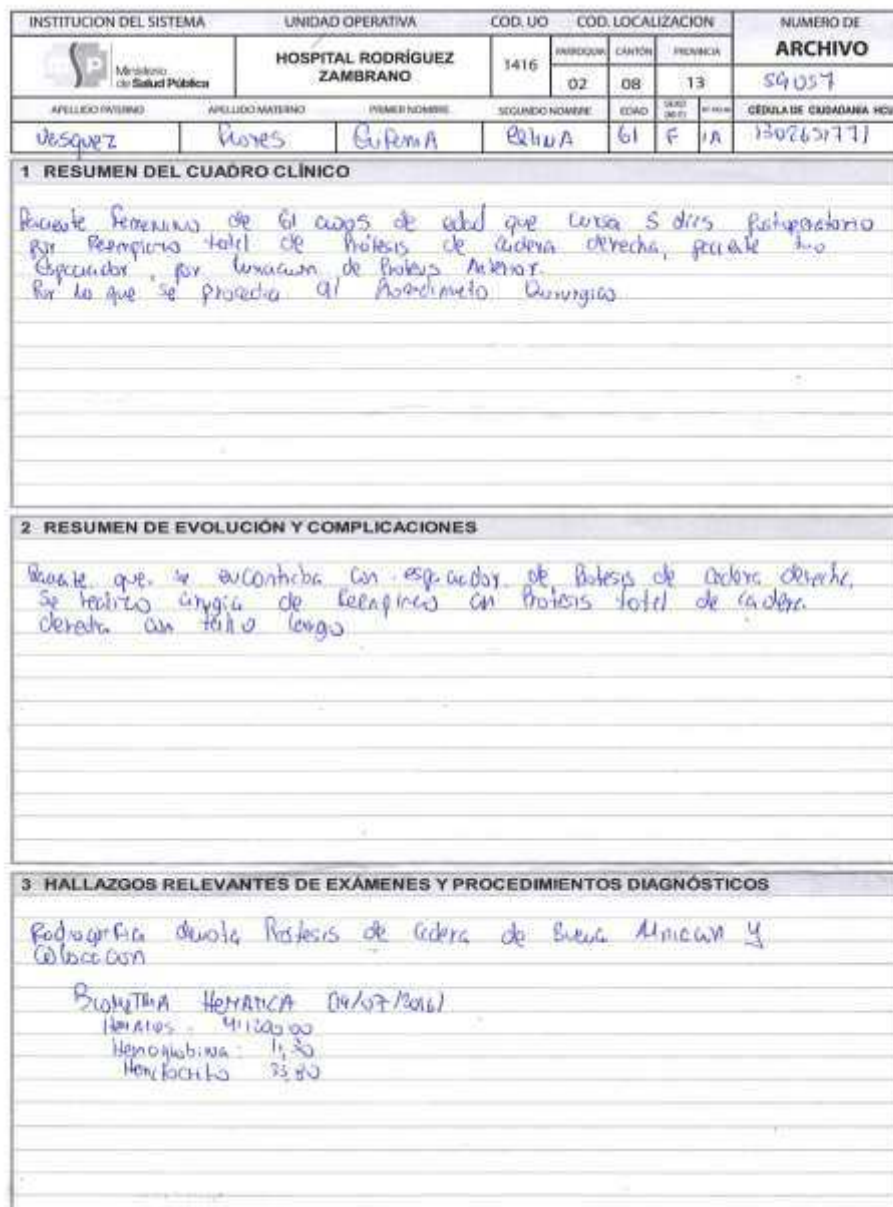 INSTITUCION DEL SISTEMA UNIDAD OPERATIVA COD. UO COD. LOCALIZACION NUMERO DE ARCHIVO
Ministerio de Salud Pública
HOSPITAL RODRÍGUEZ ZAMBRANO
1416
PARROQUIA CANTÓN PROVINCIA
02 08 13
59057
APELLIDO PATERNO APELLIDO MATERNO PRIMER NOMBRE SEGUNDO NOMBRE EDAD CÉDULA DE CIUDADANIA HCU
61 F
1 RESUMEN DEL CUADRO CLÍNICO
Paciente Femenino de 61 años de edad que cursa 5 días Postoperatorio
por Reemplazo total de Prótesis de cadera derecha, paciente
Espaciador, por luxacion de Protesis Anterior.
Por lo que se procedio al Procedimiento Quirurgico
2 RESUMEN DE EVOLUCIÓN Y COMPLICACIONES
Paciente que se encontraba con espaciador de Protesis de cadera derecha,
se realizo cirugía de Reemplazo con Protesis total de cadera
derecha con tallo largo
3 HALLAZGOS RELEVANTES DE EXÁMENES Y PROCEDIMIENTOS DIAGNÓSTICOS
Radiografia denota Protesis de Cadera de Buena Alineacion y
Colocacion
Biometria HEMATICA (14/07/2016)
Hemoglobina: 11,20
Hematocrito